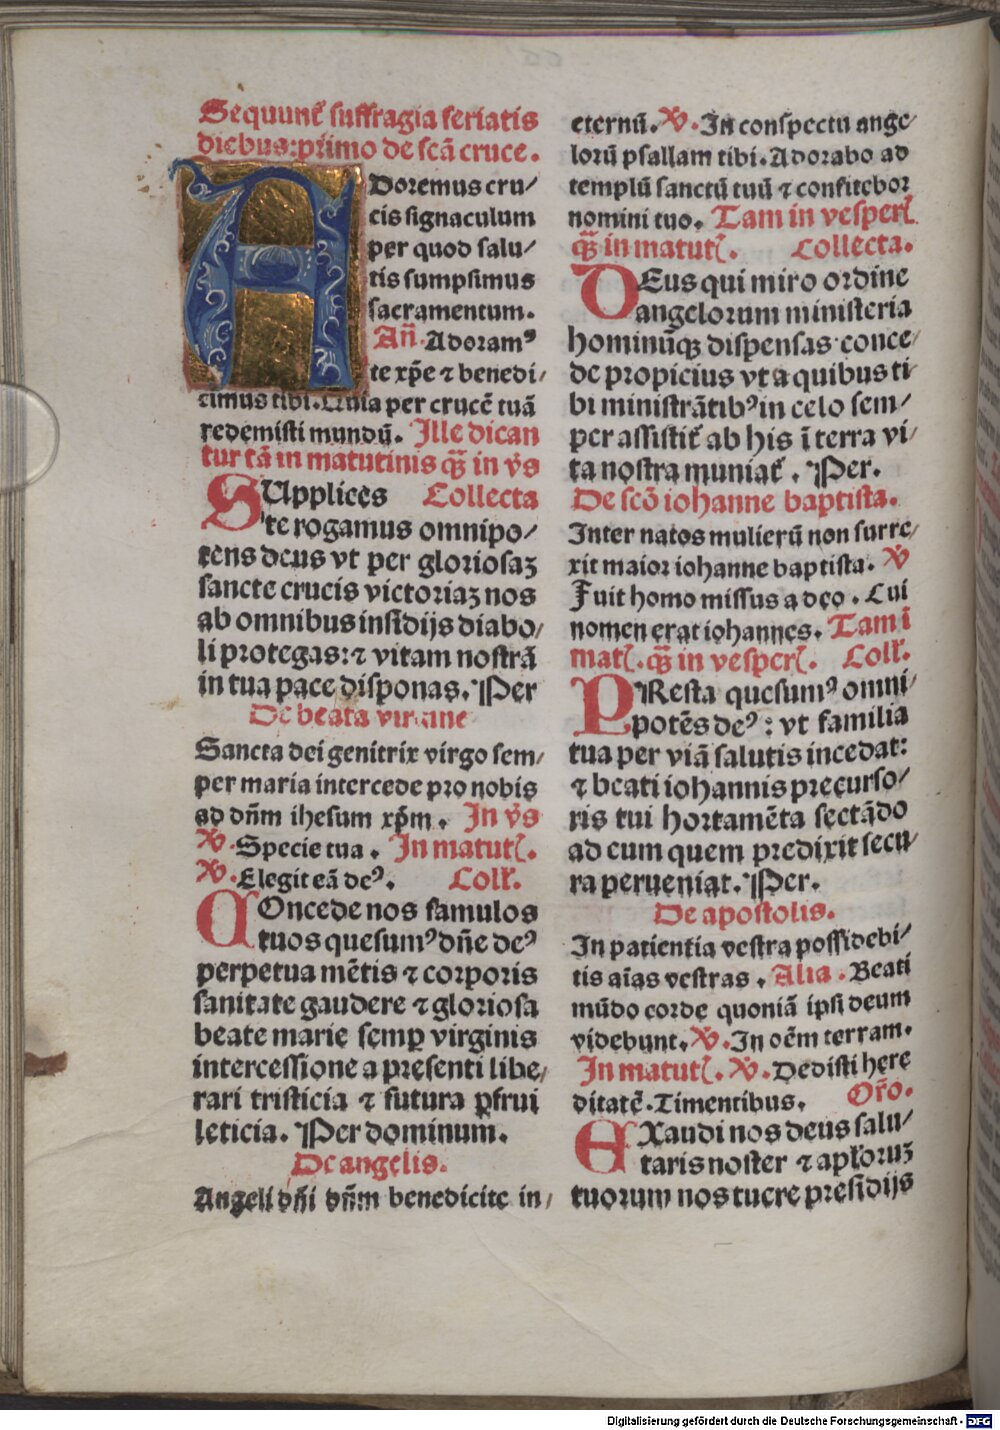 Sequunt̃ suffragia feriatis
diebus:primo de scā cruce.
ADoremus cru/
cis signaculum
per quod salu/
tis sumpsimus
sacramentum.
Añ. Adoramꝰ
te xp̄e ⁊ benedi/
cimus tibi. Quia per crucē tuā
redemisti mundū. Ille dican
tur tā in matutinis qȝ̄ in vs̄
SUpplices Collecta
te rogamus omnipo/
tens deus vt per gloriosaȝ
sancte crucis victoriaȝ nos
ab omnibus insidijs diabo/
li protegas:⁊ vitam nostrā
in tua pace disponas. Per
De beata virgine
Sancta dei genitrix virgo sem/
per maria intercede pro nobis
ad dn̄m ihesum xp̄m. In vs̄
℣. Specie tua. In matutꝭ.
℣. Elegit eā deꝰ. Coll̄.
COncede nos famulos
tuos quesumꝰ dn̄e deꝰ
perpetua mētis ⁊ corporis
sanitate gaudere ⁊ gloriosa
beate marie semꝑ virginis
intercessione a presenti libe/
rari tristicia ⁊ futura ꝑfrui
leticia. Per dominum.
De angelis.
Angeli dn̄i dn̄m benedicite in/
eternū. ℣. In conspectu ange/
lorū psallam tibi. Adorabo ad
templū sanctū tuū ⁊ confitebor
nomini tuo. Tam in vesperꝭ
qȝ̄ in matutꝭ. Collecta.
DEus qui miro ordine
angelorum ministeria
hominūqȝ dispensas conce/
de propicius vt a quibus ti/
bi ministrātibꝰ in celo sem/
per assistit̃ ab his ī terra vi/
ta nostra muniat̃. Per.
De scō iohanne baptista.
Inter natos mulierū non surre/
xit maior iohanne baptista. ℣
Fuit homo missus a deo. Cui
nomen erat iohannes. Tam ī
matꝭ. qȝ̄ in vesperꝭ. Coll̄.
PResta quesumꝰ omni/
potēs deꝰ: vt familia
tua per viā salutis incedat:
⁊ beati iohannis precurso/
ris tui hortamēta sectādo
ad eum quem predixit secu/
ra perueniat. Per.
De apostolis.
In patientia vestra possidebi/
tis aīas vestras. Alia. Beati
mūdo corde quoniā ipsi deum
videbunt. ℣. In oēm terram.
In matutꝭ. ℣. Dedisti here
ditatē. Timentibus. Or̄o.
EXaudi nos deus salu/
taris noster ⁊ apl̄oruȝ
tuorum nos tuere presidijs
Digitalisierung gefördert durch die Deutsche Forschungsgemeinschaft - DFG